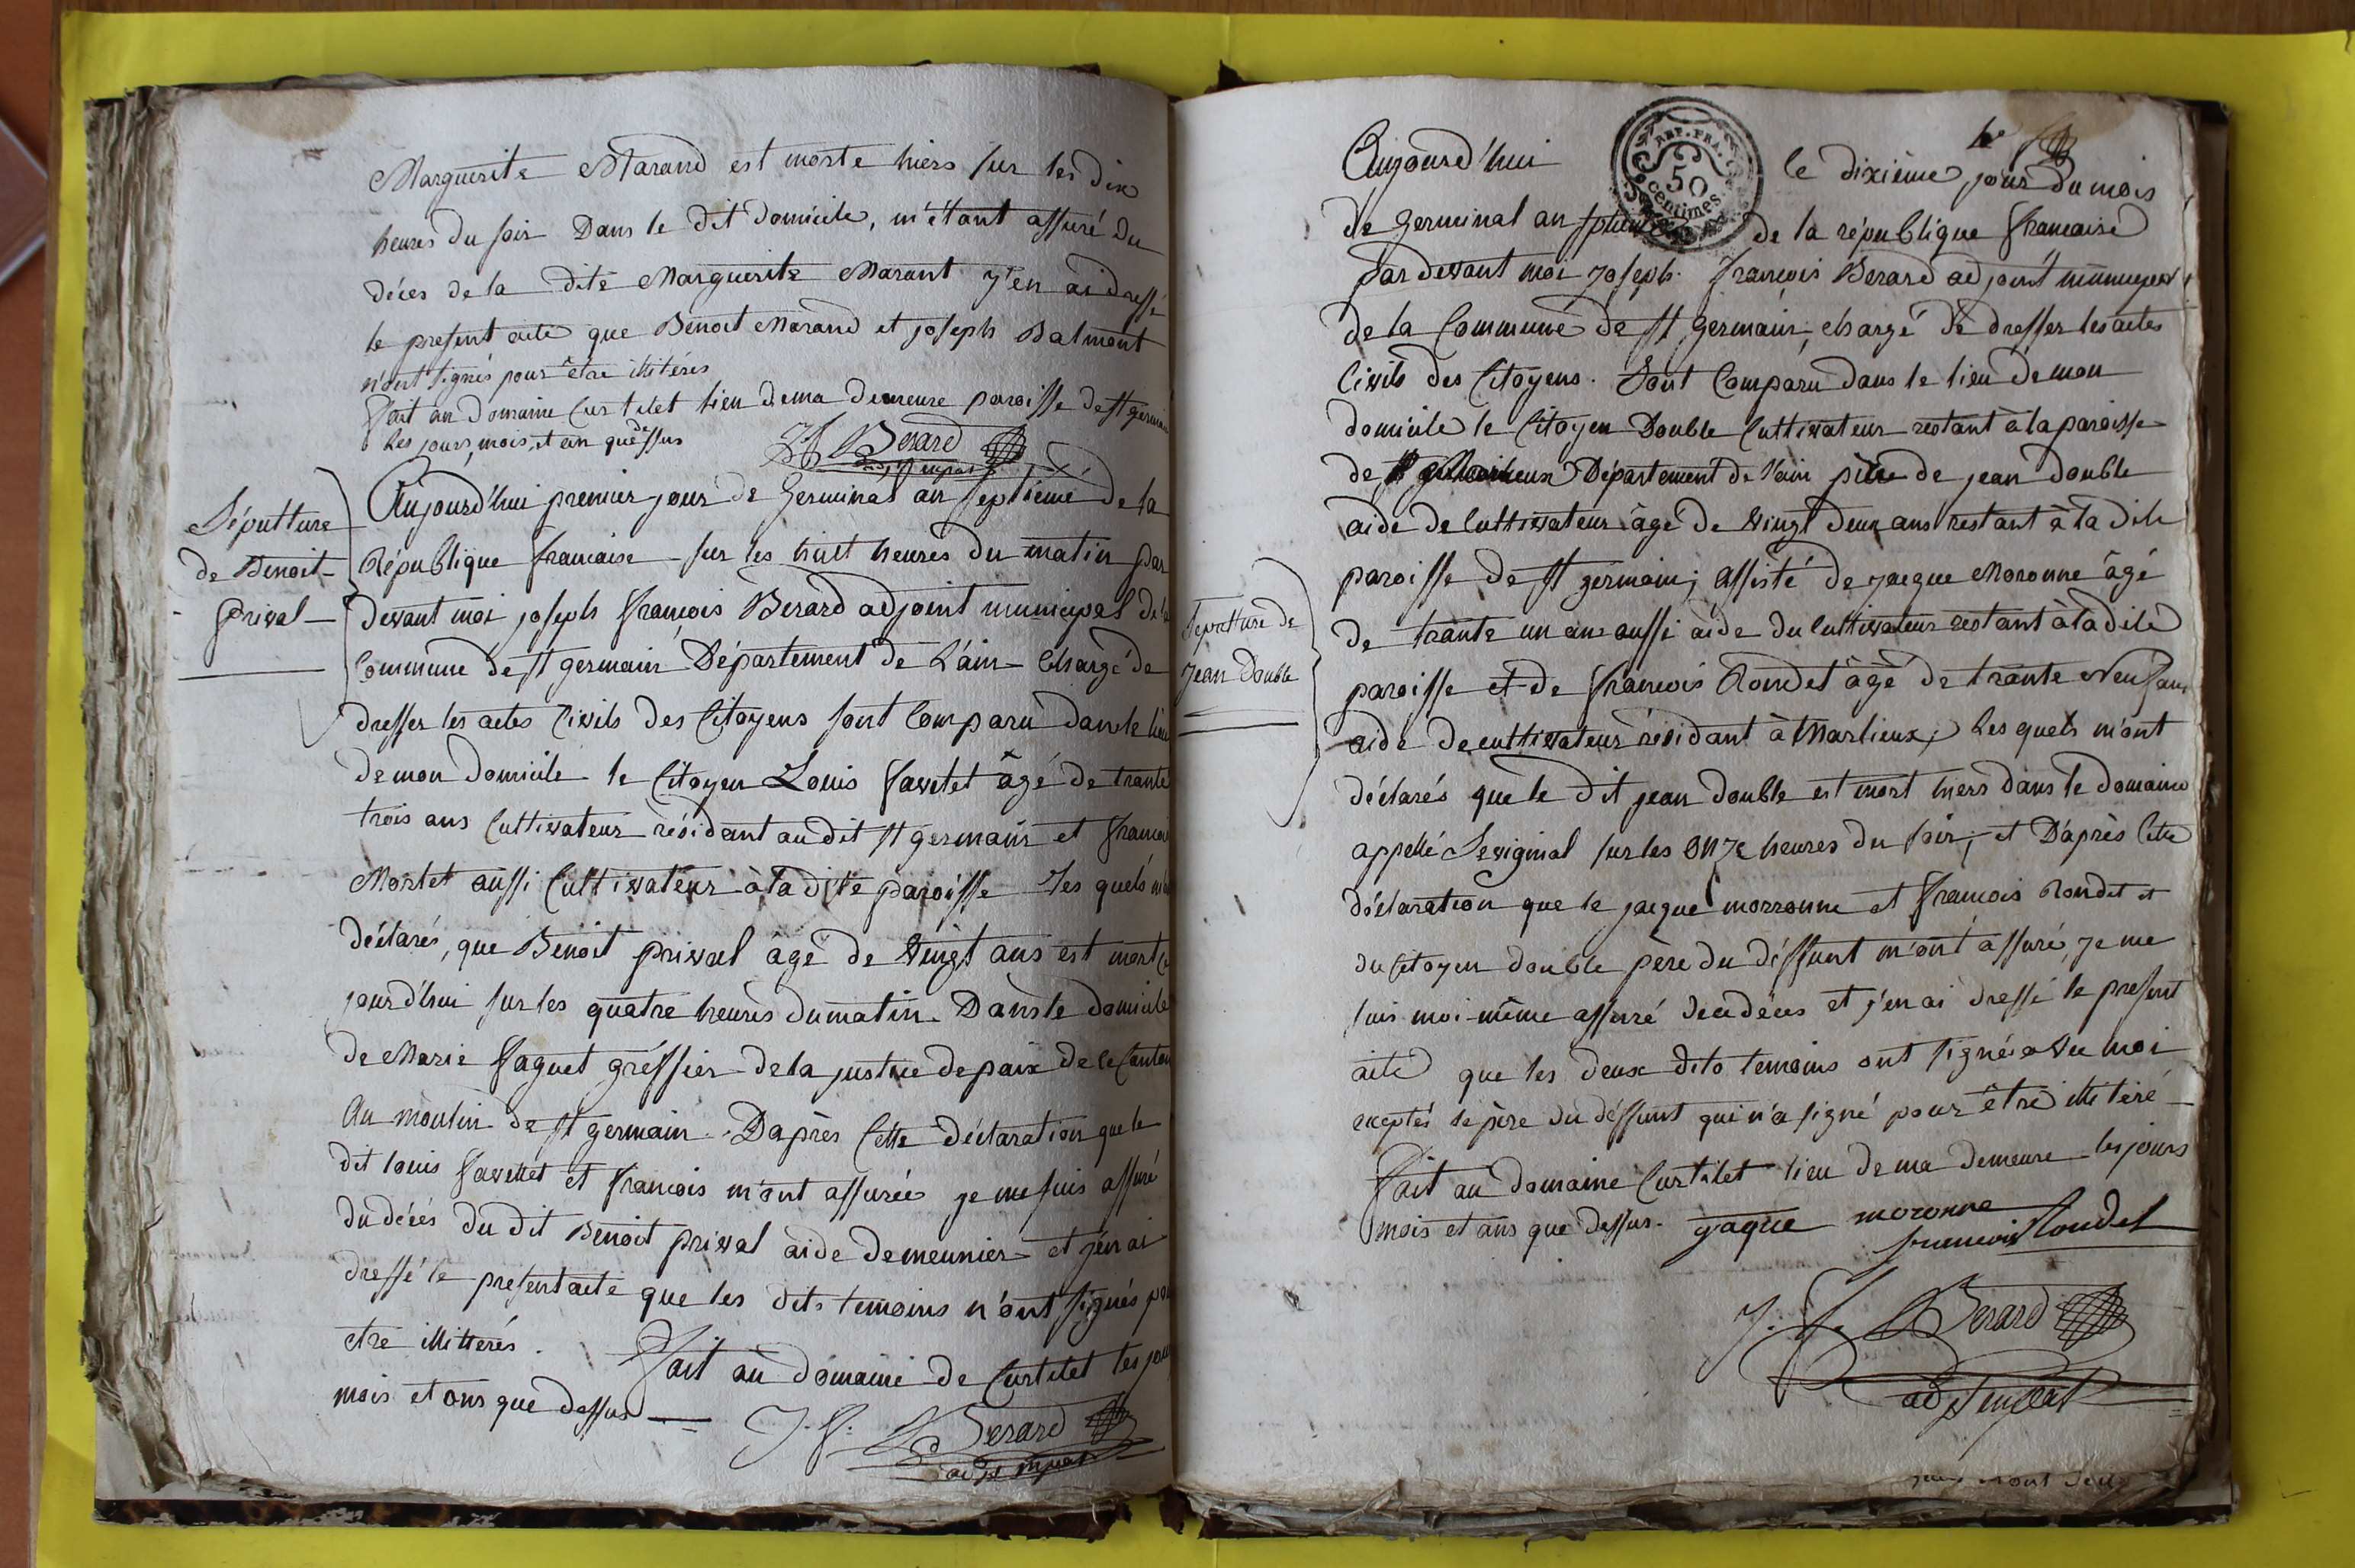 Marguerite Marand est morte hiers sur les dix
heures du soir Dans le Dit domicile, m'étant assuré du
déces de la dite Marguerite Marant j'en ai dressé
le present acte que Benoit Marand et joseph Balmont
n'ont signés pour être illitérés
fait au domaine Curtelet lieu de ma demeure paroisse de st germain
les jours, mois, et an que dessus
J f Berard
adjt mpal
Sépulture
de Benoit
prival
Aujourd'hui premier jour de Germinal an septiéme de la
République francaise sur les huit heures du matin par
devant moi joseph francois Berard adjoint municipal de la
Commune de st germain Département de L'ain Chargé de
dresser les actes Civils des Citoyens sont Comparu dans le lieu
de mon domicile le Citoyen Louis favetet âgé de trante
trois ans Cultivateur résidant au dit st germain et francoi
Mortet aussi Cultivateur à la dite paroisse Les quels m'on
déclarés, que Benoit prival âgé de vingt ans est mort ce
jourd'hui sur les quatre heures du matin. Dans le domicile
de Marie faguet gréffier de la justice de paix de ce Canton
Au moulin de st germain. D'après Cette déclaration que le
dit louis favettet et francois m'ont assurée je me suis assuré
du déces du dit Benoit prival aide de meunier et j'en ai
dressé le present acte que les dits temoins n'ont signés pou
etre illitterés.
fait au domaine de Curtelet les jou
mois et ans que dessus
J. f. Berard
adjt mpal
Aujourd'hui
REP. FRA.
50
centimes.
le dixième jour du mois
de Germinal an
de la république francaise
par devant moi joseph francois Berard adjoint municipal
de la Commune de st germain, chargé de dresser les actes
Civils des Citoyens. Sont Comparu dans le lieu de mon
domicile le Citoyen Double Cultivateur restant à la paroisse
de Département de l'ain père de jean double
aide de Cultivateur âgé de vingt deux ans restant à la dite
paroisse de st germain; assisté de jacque Moronne âgé
de trante un ans aussi aide du Cultivateur restant à la dite
paroisse et de francois Rondet âgé de trante Neuf ans
aide de cultivateur résidant à Marlieux; les quels m'ont
déclarés que le dit jean double est mort hiers dans le domaine
appellé Sevignial sur les onze heures du soir, et D'après Cette
déclaration que le jacque morronne et francois Rondet et
du Citoyen double père du déffunt m'ont assuré, je me
suis moi-même assuré de ce déces et j'en ai dressé le present
acte que les deux dits temoins ont signés avec moi
exeptés le père du déffunt qui n'a signé pour être illitéré
Fait au domaine Curtilet lieu de ma demeure les jours
mois et ans que dessus. jaque moronne
francois Rondet
J. f. Berard
Sepulture de
Jean Double